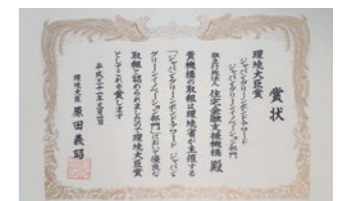 賞状
環境大臣賞
ジャパン・グリーンボンド・アワード
ジャパン・グリーンイノベーション部門
独立行政法人 住宅金融支援機構 殿
貴機構の取組は環境省が主催する
「ジャパン・グリーンボンド・アワード ジャパン・
グリーンイノベーション部門」において優秀な
取組と認められましたので環境大臣賞
としてこれを賞します
平成三十一年
環境大臣 原田義昭